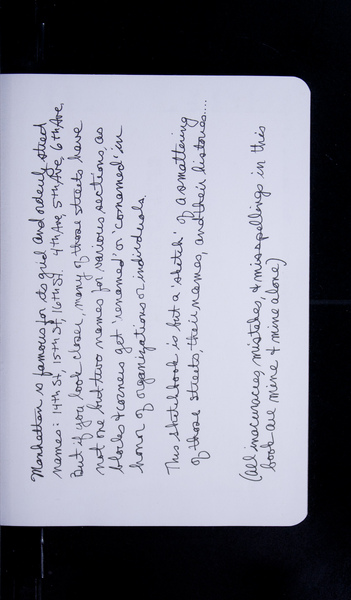 Manhattan is famous for its grid and orderly street
names: 14th St, 15th St, 16th St. 4th Ave, 5th Ave, 6th Ave.
But if you look closer, many of those streets have
not one but two names for various sections, as
blocks & corners get 'renamed' or 'conamed' in
honor of organizations or individuals.
This sketchbook is but a 'sketch' of a smattering
of those streets, their names, and their histories....
(All inaccuracies, mistakes, & misspellings in this
book are mine & mine alone)